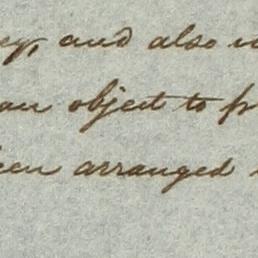 and also
an object to
een arranged